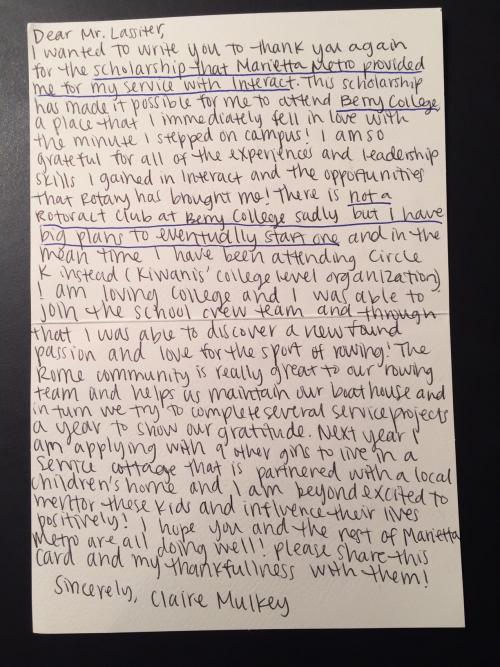 Dear Mr. Lassiter,
I wanted to write you to thank you again
for the scholarship that Marietta Metro provided
me for my service with Interact. This scholarship
has made it possible for me to attend Berry College,
a place that I immediately fell in love with
the minute I stepped on campus! I am so
grateful for all of the experiences and leadership
skills I gained in Interact and the opportunities
that Rotary has brought me! There is not a
Rotoract club at Berry College sadly but I have
big plans to eventually start one and in the
mean time I have been attending Circle
K instead (Kiwanis' college level organization)
I am loving college and I was able to
join the school crew team and through
that I was able to discover a new found
passion and love for the sport of rowing! The
Rome community is really great to our rowing
team and helps us maintain our boat house and
in turn we try to complete several service projects
a year to show our gratitude. Next year I
am applying with 9 other girls to live in a
service cottage that is partnered with a local
children's home and I am beyond excited to
mentor these kids and influence their lives
positively! I hope you and the rest of Marietta
Metro are all doing well! Please share this
card and my thankfullness with them!
Sincerely, Claire Mulkey